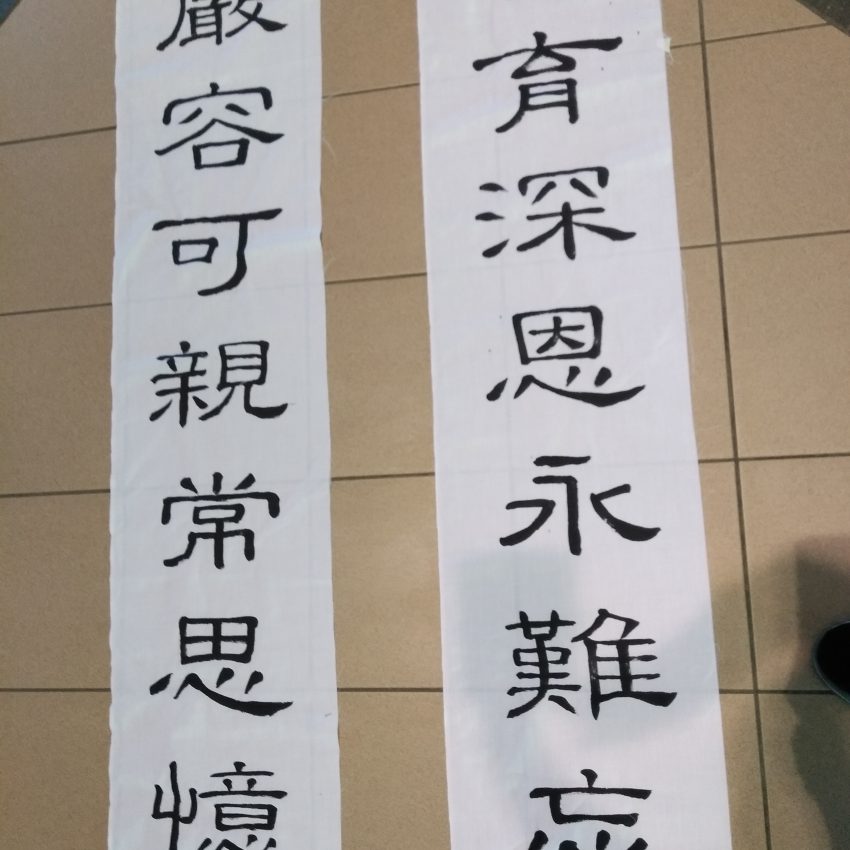 育深恩永難忘
嚴容可親常思憶